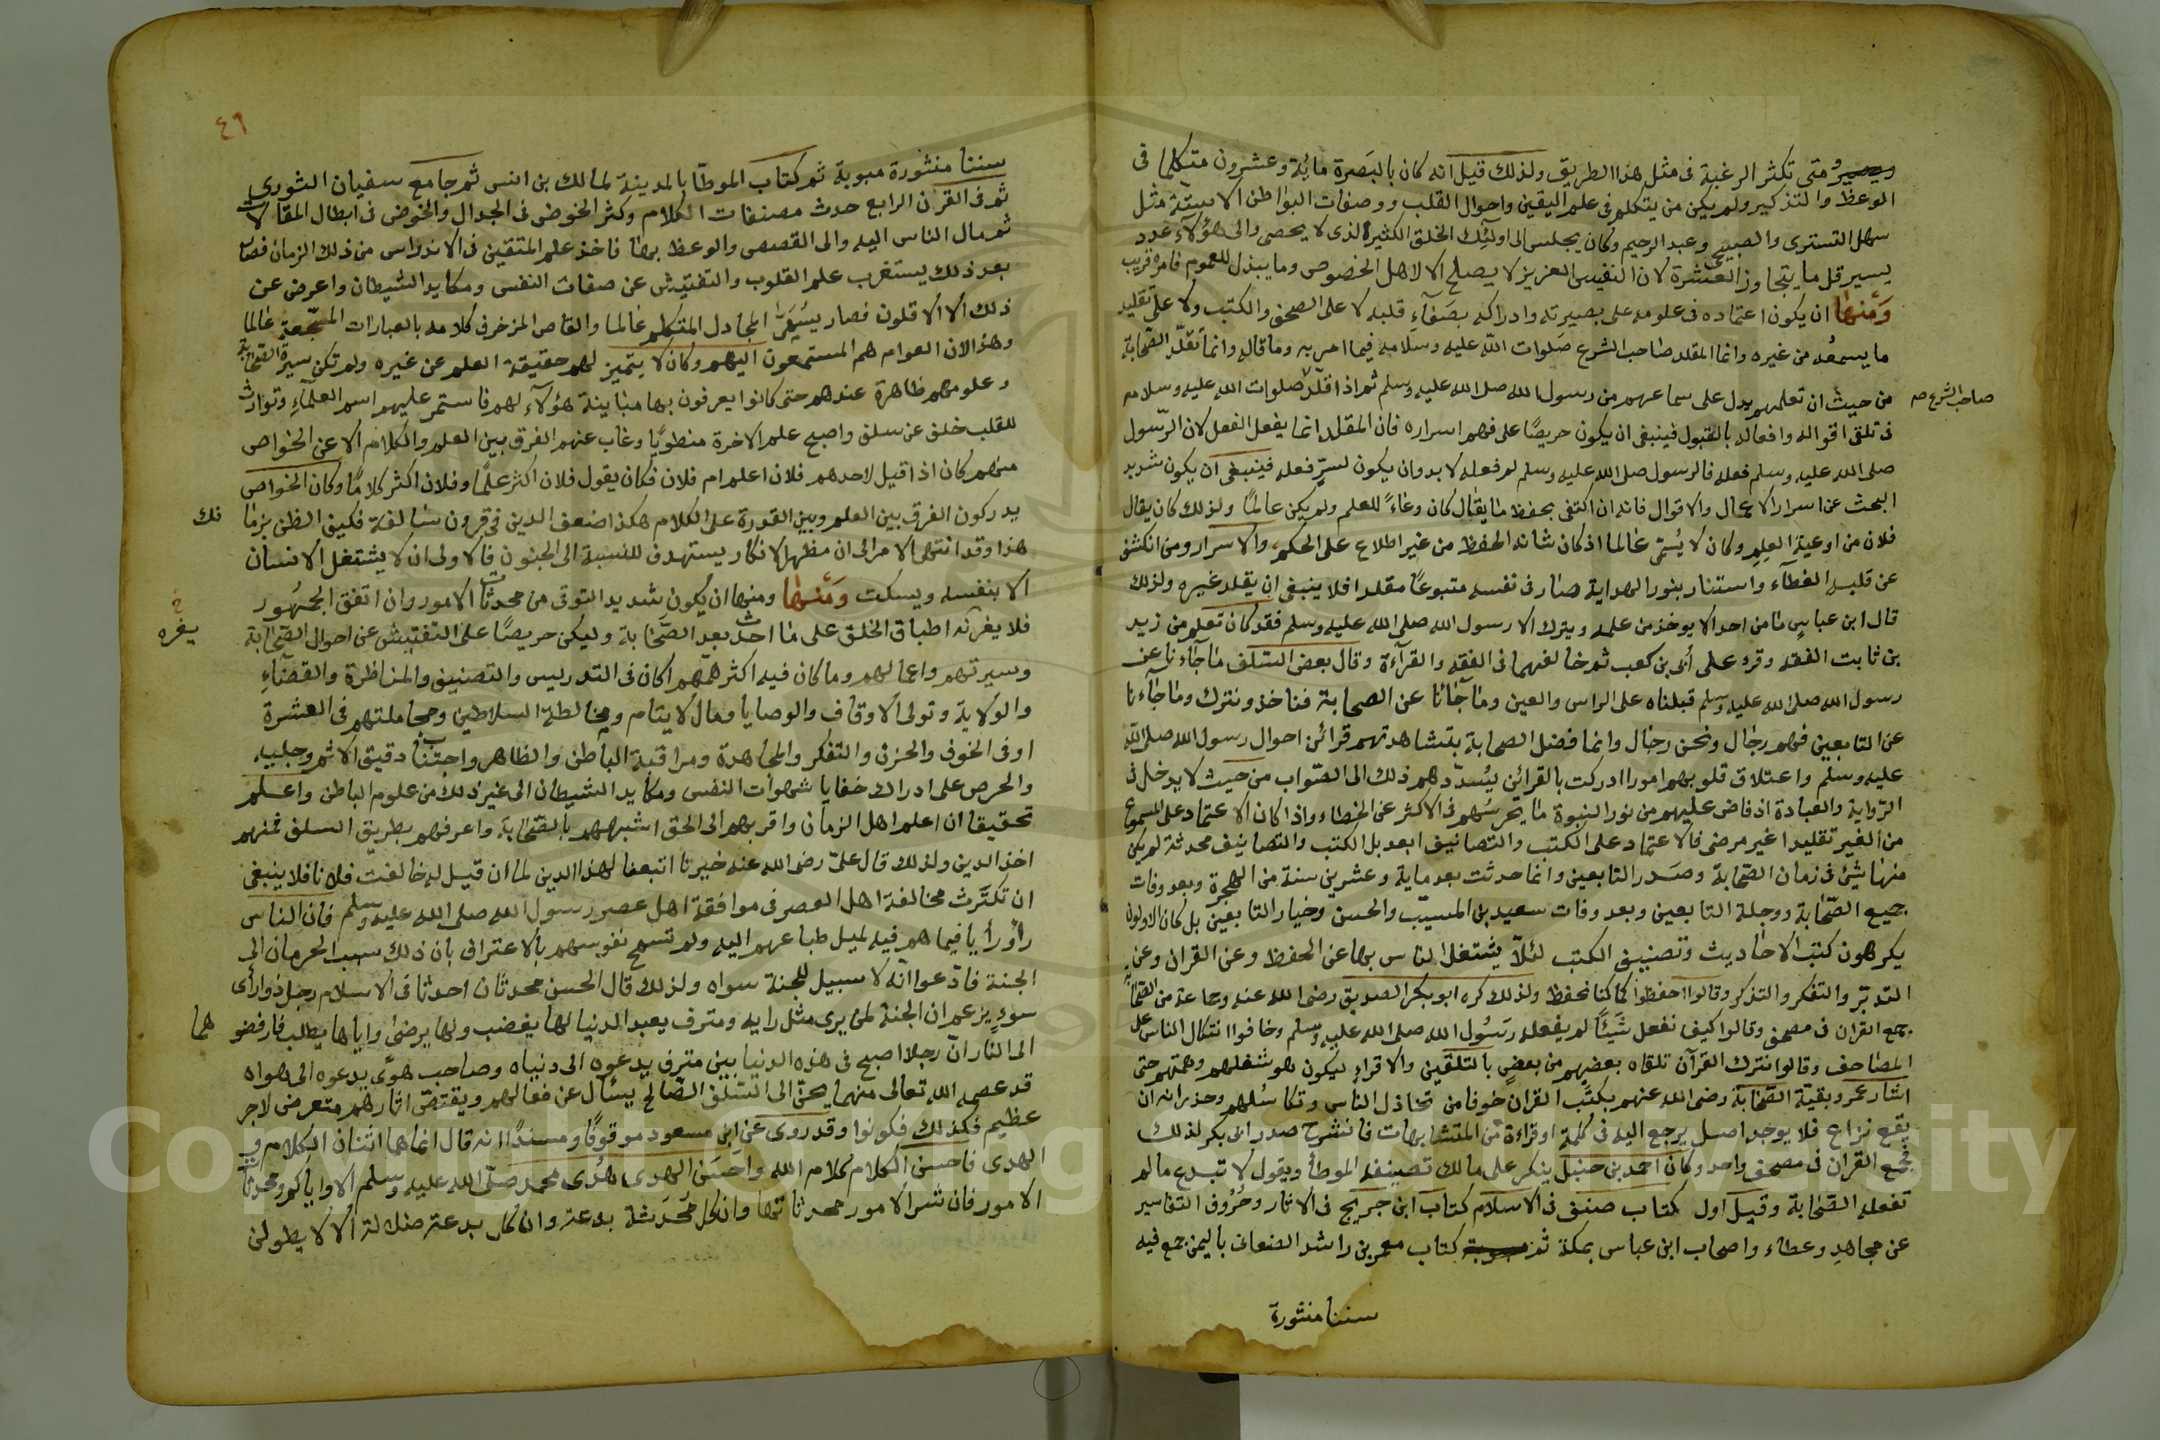 ويصير متى تكثر الرغبة فى مثل هذا الطريق ولذلك قيل انه كان بالبصرة مائة وعشرون متكلما فى
الوعظ والتذكير ولم يكن من يتكلم فى علم اليقين واحوال القلب ووصفات البواطن الا ستة مثل
سهل التسترى والصبيحى وعبد الرحيم وكان يجلس الى اولئك الخلق الكثير الذى لا يحصى والى هؤلاء عدد
يسير قل ما يتجاوز العشرة لان النفيس العزيز لا يصلح الا لاهل الخصوص وما يبذل للعموم فامره قريب
ومنها ان يكون اعتماده فى علومه على بصيرته وادراكه بصفاء قلبه لا على الصحف والكتب ولا على تقليد
ما يسمعه من غيره وانما المقلد صاحب الشرع صلوات الله عليه وسلامه فيما امر به وما قاله وانما تقلد الصحابة
من حيث ان تعلمهم يدل على سماعهم من رسول الله صلى الله عليه وسلم ثم اذا قلد صلوات الله عليه وسلامه
صاحب الشرع صح
فى تلقى اقواله وافعاله بالقبول فينبغى ان يكون حريصا على فهم اسراره فان المقلد انما يفعل الفعل لان الرسول
صلى الله عليه وسلم فعله فالرسول صلى الله عليه وسلم لم فعله لا بد وان يكون لسر فعله فينبغى ان يكون شديد
البحث عن اسرار الاعمال والاقوال فانه ان اكتفى بحفظ ما يقال كان وعاء للعلم ولم يكن عالما ولذلك كان يقال
فلان من اوعية العلم وكان لا يسمى عالما اذ كان شانه الحفظ من غير اطلاع على الحكم والاسرار ومن انكشف
عن قلبه الغطاء واستنار بنور الهداية صار فى نفسه متبوعا مقلدا فلا ينبغى ان يقلد غيره ولذلك
قال ابن عباس ما من احد الا يوخذ من علمه ويترك الا رسول الله صلى الله عليه وسلم فقد كان تعلم من زيد
بن ثابت الفقه وقرء على أبى بن كعب ثم خالفهما فى الفقه والقراءة وقال بعض السلف ما جاءنا عن
رسول الله صلى الله عليه وسلم قبلناه على الراس والعين وما جاءنا عن الصحابة فناخذ ونترك وما جاءنا
عن التابعين فهم رجال ونحن رجال وانما فضل الصحابة بتشاهدتهم قرائن احوال رسول الله صلى الله
عليه وسلم واعتلاق قلوبهم امورا ادركت بالقرائن ليسددهم ذلك الى الصواب من حيث لا يدخل فى
الرواية والعبادة اذ فاض عليهم من نور النبوة ما يحرسهم فى الاكثر عن الخطاء واذا كان الاعتماد على المسموع
من الغير تقليدا غير مرضى فالاعتماد على الكتب والتصانيف ابعد بل الكتب والتصانيف محدثة لم يكن
منها شئ فى زمان الصحابة وصدر التابعين وانما حدثت بعد ماية وعشرين سنة من الهجرة وبعد وفات
جميع الصحابة وجلة التابعين وبعد وفات سعيد بن المسيب والحسن وخيار التابعين بل كان الاولون
يكرهون كتب الاحاديث وتصنيف الكتب لئلا يشتغل الناس بها عن الحفظ وعن القران وعن
التدبر والتفكر والتذكر وقالوا احفظوا كما كنا نحفظ ولذلك كره ابو بكر الصديق رضى الله عنه وجماعة من الصحابة
جمع القران فى مصحف وقالوا كيف نفعل شيئا لم يفعله رسول الله صلى الله عليه وسلم وخافوا اتكال الناس على
المصاحف وقالوا نترك القرآن تلقاه بعضهم من بعض بالتلقين والاقراء ليكون هو شغلهم وهمتهم حتى
اشار عمر وبقية الصحابة رضى الله عنهم بكتب القران خوفا من تخاذل الناس وتكاسلهم وحذرا من ان
يقع نزاع فلا يوجد اصل يرجع اليه فى كلمة او قراءة من المتشابهات فانشرح صدر ابى بكر لذلك
فجمع القران فى مصحف واحد وكان احمد بن حنبل ينكر على مالك تصنيفه الموطأ ويقول لا تبدع ما لم
تفعله الصحابة وقيل اول كتاب صنف فى الاسلام كتاب ابن جريج فى الاثار وحروف التفاسير
عن مجاهد وعطاء واصحاب ابن عباس بمكة ثم كتاب معمر بن راشد الصنعانى باليمن جمع فيه
سننا منثورة
٤٦
سننا منثورة مبوبة ثم كتاب الموطأ بالمدينة لمالك بن انس ثم جامع سفيان الثورى
ثم فى القرن الرابع حدث مصنفات الكلام وكثر الخوض فى الجدال والخوض فى ابطال المقالات
ثم مال الناس اليه والى القصص والوعظ بها فاخذ علم المتقين فى الاندراس من ذلك الزمان فصار
بعد ذلك يستغرب علم القلوب والتفتيش عن صفات النفس ومكايد الشيطان واعرض عن
ذلك الا الاقلون فصار يسمى المجادل المتكلم عالما والقاص المزخرف كلامه بالعبارات المسجعة عالما
وهذا لان العوام هم المستمعون اليهم وكان لا يتميز لهم حقيقة العلم عن غيره ولم تكن سيرة الصحابة
وعلومهم ظاهرة عندهم حتى كانوا يعرفون بها مباينة هؤلاء لهم فاستمر عليهم اسم العلماء وتوارث
للقلب خلف عن سلف واصبح علم الاخرة منطويا وغاب عنهم الفرق بين العلم والكلام الا عن الخواص
منهم كان اذا قيل لاحدهم فلان اعلم ام فلان فكان يقول فلان اكثر علما وفلان اكثر كلاما وكان الخواص
يدركون الفرق بين العلم وبين القدرة على الكلام هكذا ضعف الدين فى قرون سالفة فكيف الظن بزما
نك
هذا وقد انتهى الامر الى ان مظهر الانكار يستهدف للنسبة الى الجنون فالاولى ان لا يشتغل الانسان
الا بنفسه ويسكت ومنها ومنها ان يكون شديد التوقى من محدثات الامور وان اتفق الجمهور
فلا يغرنه اطباق الخلق على ما احدث بعد الصحابة وليكن حريصا على التفتيش عن احوال الصحابة
خ
يغره
وسيرتهم واعمالهم وما كان فيه اكثر همهم اكان فى التدريس والتصنيف والمناظرة والقضاء
والولاية وتولى الاوقاف والوصايا ومال الايتام ومخالطة السلاطين ومجاملتهم فى العشرة
او فى الخوف والحزن والتفكر والمجاهدة ومراقبة الباطن والظاهر واجتناب دقيق الاثم وجليه
والحرص على ادراك خفايا شهوات النفس ومكايد الشيطان الى غير ذلك من علوم الباطن واعلم
تحقيقا ان اعلم اهل الزمان واقربهم الى الحق اشبههم بالصحابة واعرفهم بطريق السلف فمنهم
اخذ الدين ولذلك قال على رضى الله عنه خيرنا اتبعنا لهذا الدين لما ان قيل له خالفت فلانا فلا ينبغى
ان تكترث مخالفة اهل العصر فى موافقة اهل عصر رسول الله صلى الله عليه وسلم فان الناس
رأو رأيا فيما هم فيه لميل طباعهم اليه ولم تسمح نفوسهم بالاعتراف بان ذلك سبب الحرمان الى
الجنة فادعوا انه لا سبيل للجنة سواه ولذلك قال الحسن محدثان احدثا فى الاسلام رجل ذو اراى
سوء يزعم ان الجنة لمن يرى مثل رايه ومترف يعبد الدنيا لها يغضب ولها يرضى واياها يطلب فارفضو
هما
الى النار ان رجلا اصبح فى هذه الدنيا بين مترف يدعوه الى دنياه وصاحب هوى يدعوه الى هواه
قد عصمه الله تعالى منهما يحن الى السلف الصالح يسئال عن فعالهم ويقتض اثارهم متعرض لاجر
عظيم فكذلك فكونوا وقد روى عن ابن مسعود موقوفا ومسندا انه قال انما هما اثنان الكلام و
الهدى فاحسن الكلام كلام الله واحسن الهدى هدى محمد صلى الله عليه وسلم الا واياكم ومحدثات
الامور فان شر الامور محدثاتها وان كل محدثة بدعة وان كل بدعة ضلالة الا لا يطولن